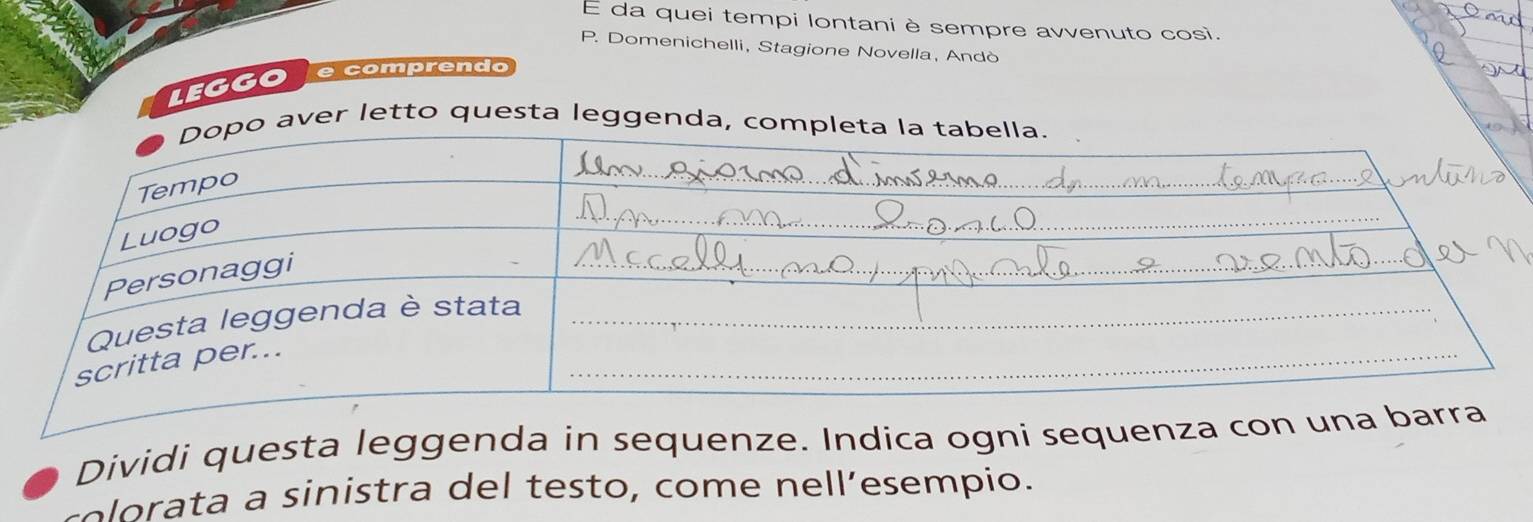 E da quei tempi lontani è sempre avvenuto così.
P. Domenichelli, Stagione Novella, Andò
LEGGO e comprendo
Dopo aver letto questa leggenda, completa la tabella.
Tempo Un giorno d'inverno in tempo
Luogo In un bosco
Personaggi Uccellino, piante e vento del
Questa leggenda è stata
scritta per...
Dividi questa leggenda in sequenze. Indica ogni sequenza con una barra
colorata a sinistra del testo, come nell'esempio.